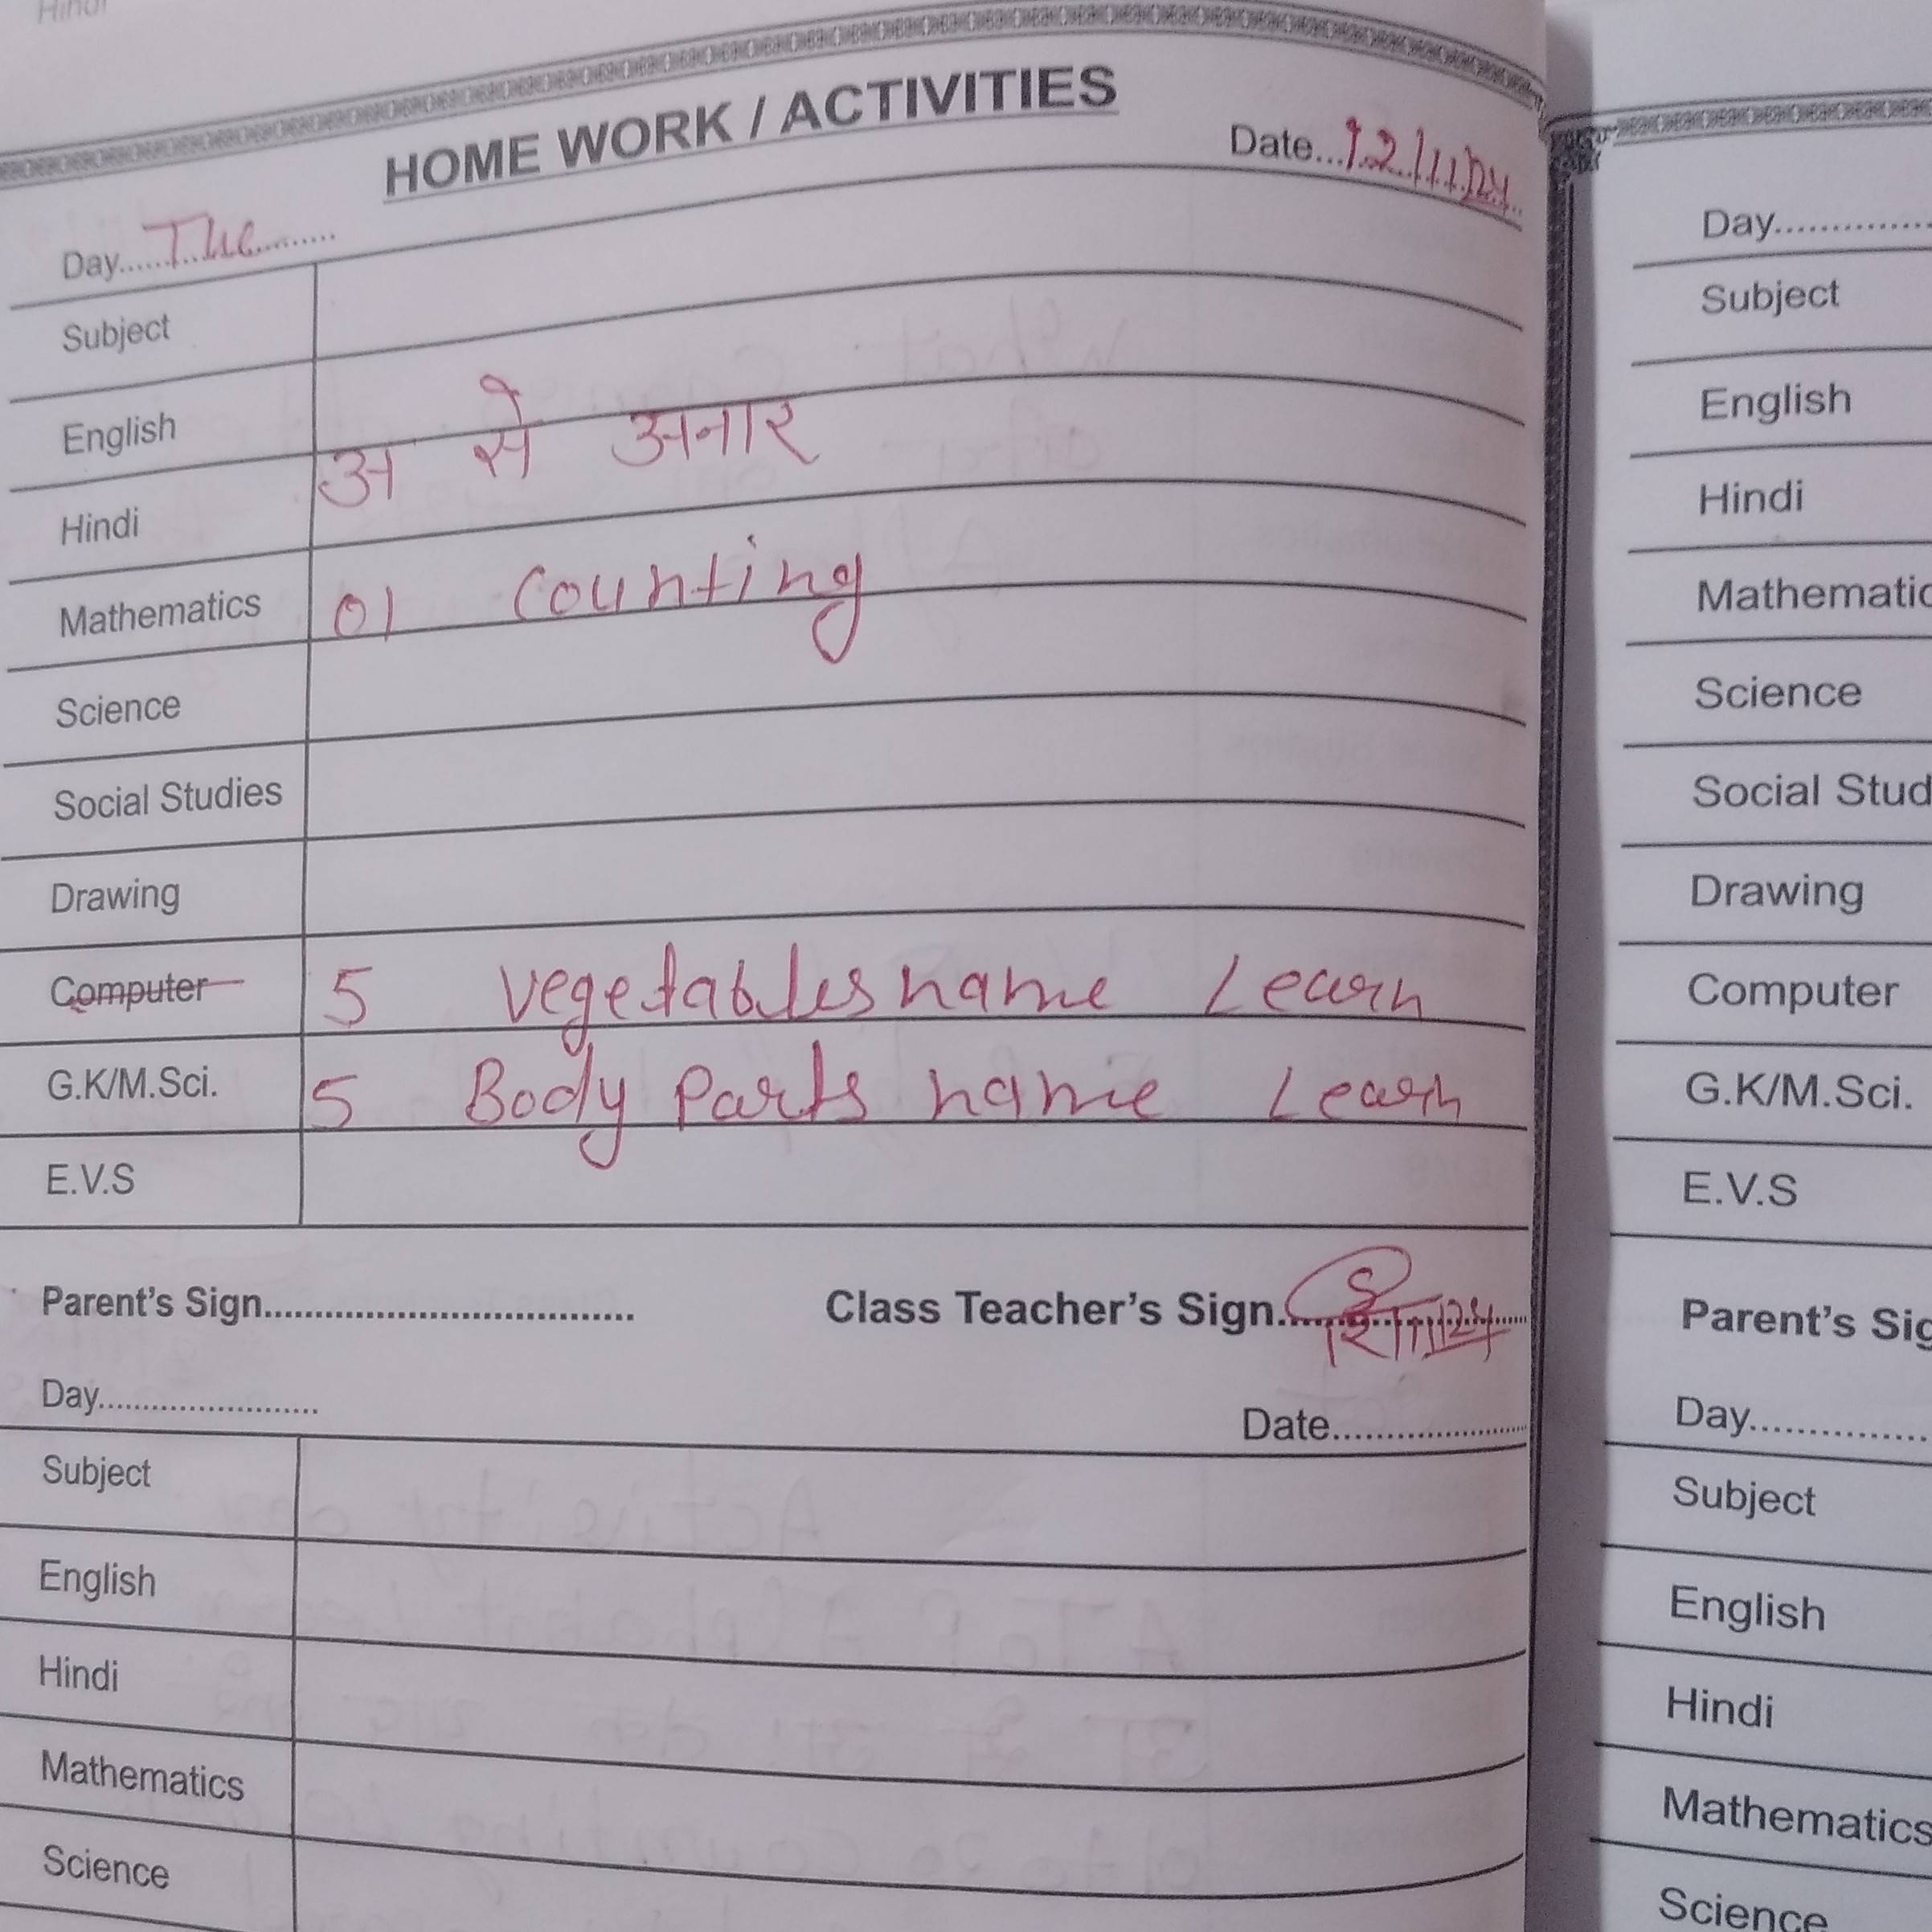 Hindi
HOME WORK / ACTIVITIES
Day......Tue.......... Date...12/11/24
Subject
English
Hindi अ से अनार
Mathematics 01 Counting
Science
Social Studies
Drawing
Computer 5 vegetables name Learn
G.K/M.Sci. 5 Body Parts name Learn
E.V.S
Parent's Sign.................................... Class Teacher's Sign. 12/11/24
Day....................... Date....................
Subject
English
Hindi
Mathematics
Science
Day..............
Subject
English
Hindi
Mathematic
Science
Social Stud
Drawing
Computer
G.K/M.Sci.
E.V.S
Parent's Sig
Day..............
Subject
English
Hindi
Mathematics
Science